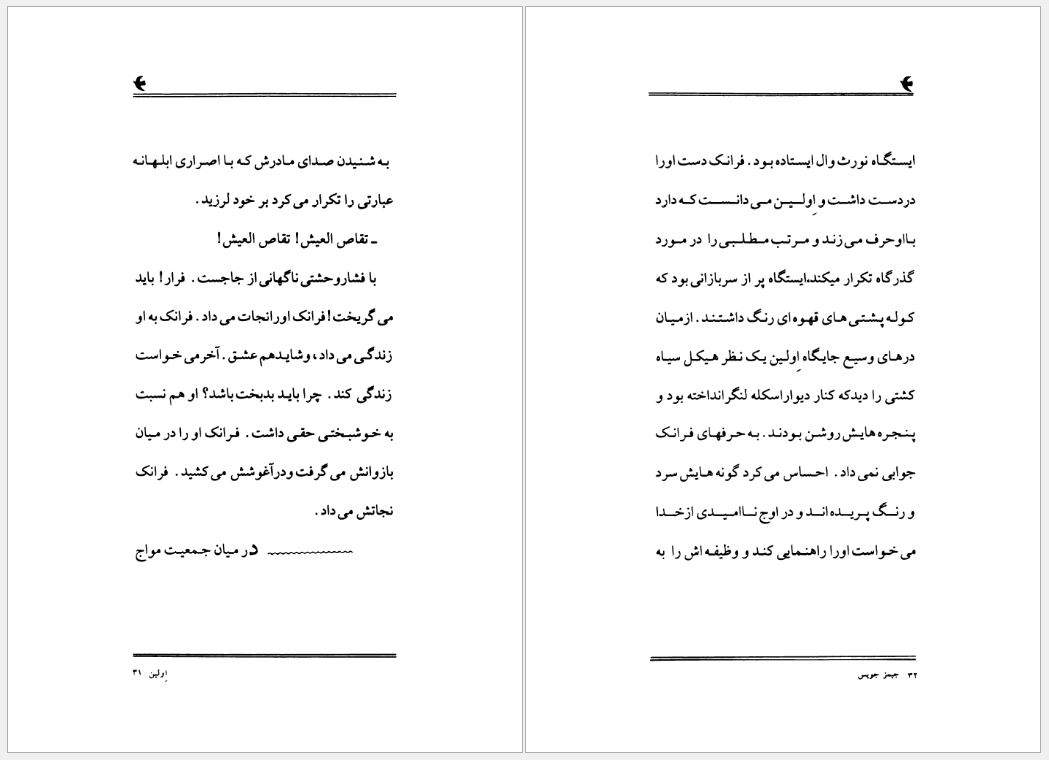 به شنیدن صدای مادرش که با اصراری ابلهانه
عبارتی را تکرار می کرد بر خود لرزید.
ـ تقاص العیش! تقاص العیش!
با فشاروحشتی ناگهانی از جاجست. فرار! باید
می گریخت! فرانک اورانجات می داد. فرانک به او
زندگی می داد، وشایدهم عشق. آخرمی خواست
زندگی کند. چرا باید بدبخت باشد؟ او هم نسبت
به خوشبختی حقی داشت. فرانک او را در میان
بازوانش می گرفت ودرآغوشش می کشید. فرانک
نجاتش می داد.
در میان جمعیت مواج
اِولین ۳۱
ایستگاه نورث وال ایستاده بود. فرانک دست اورا
دردست داشت و اِولین می دانست که دارد
بااوحرف می زند و مرتب مطلبی را در مورد
گذرگاه تکرار میکند،ایستگاه پر از سربازانی بود که
کوله پشتی های قهوه ای رنگ داشتند. ازمیان
درهای وسیع جایگاه اِولین یک نظر هیکل سیاه
کشتی را دیدکه کنار دیواراسکله لنگرانداخته بود و
پنجره هایش روشن بودند. به حرفهای فرانک
جوابی نمی داد. احساس می کرد گونه هایش سرد
و رنگ پریده اند و در اوج ناامیدی ازخدا
می خواست اورا راهنمایی کند و وظیفه اش را به
۳۲ جیمز جویس